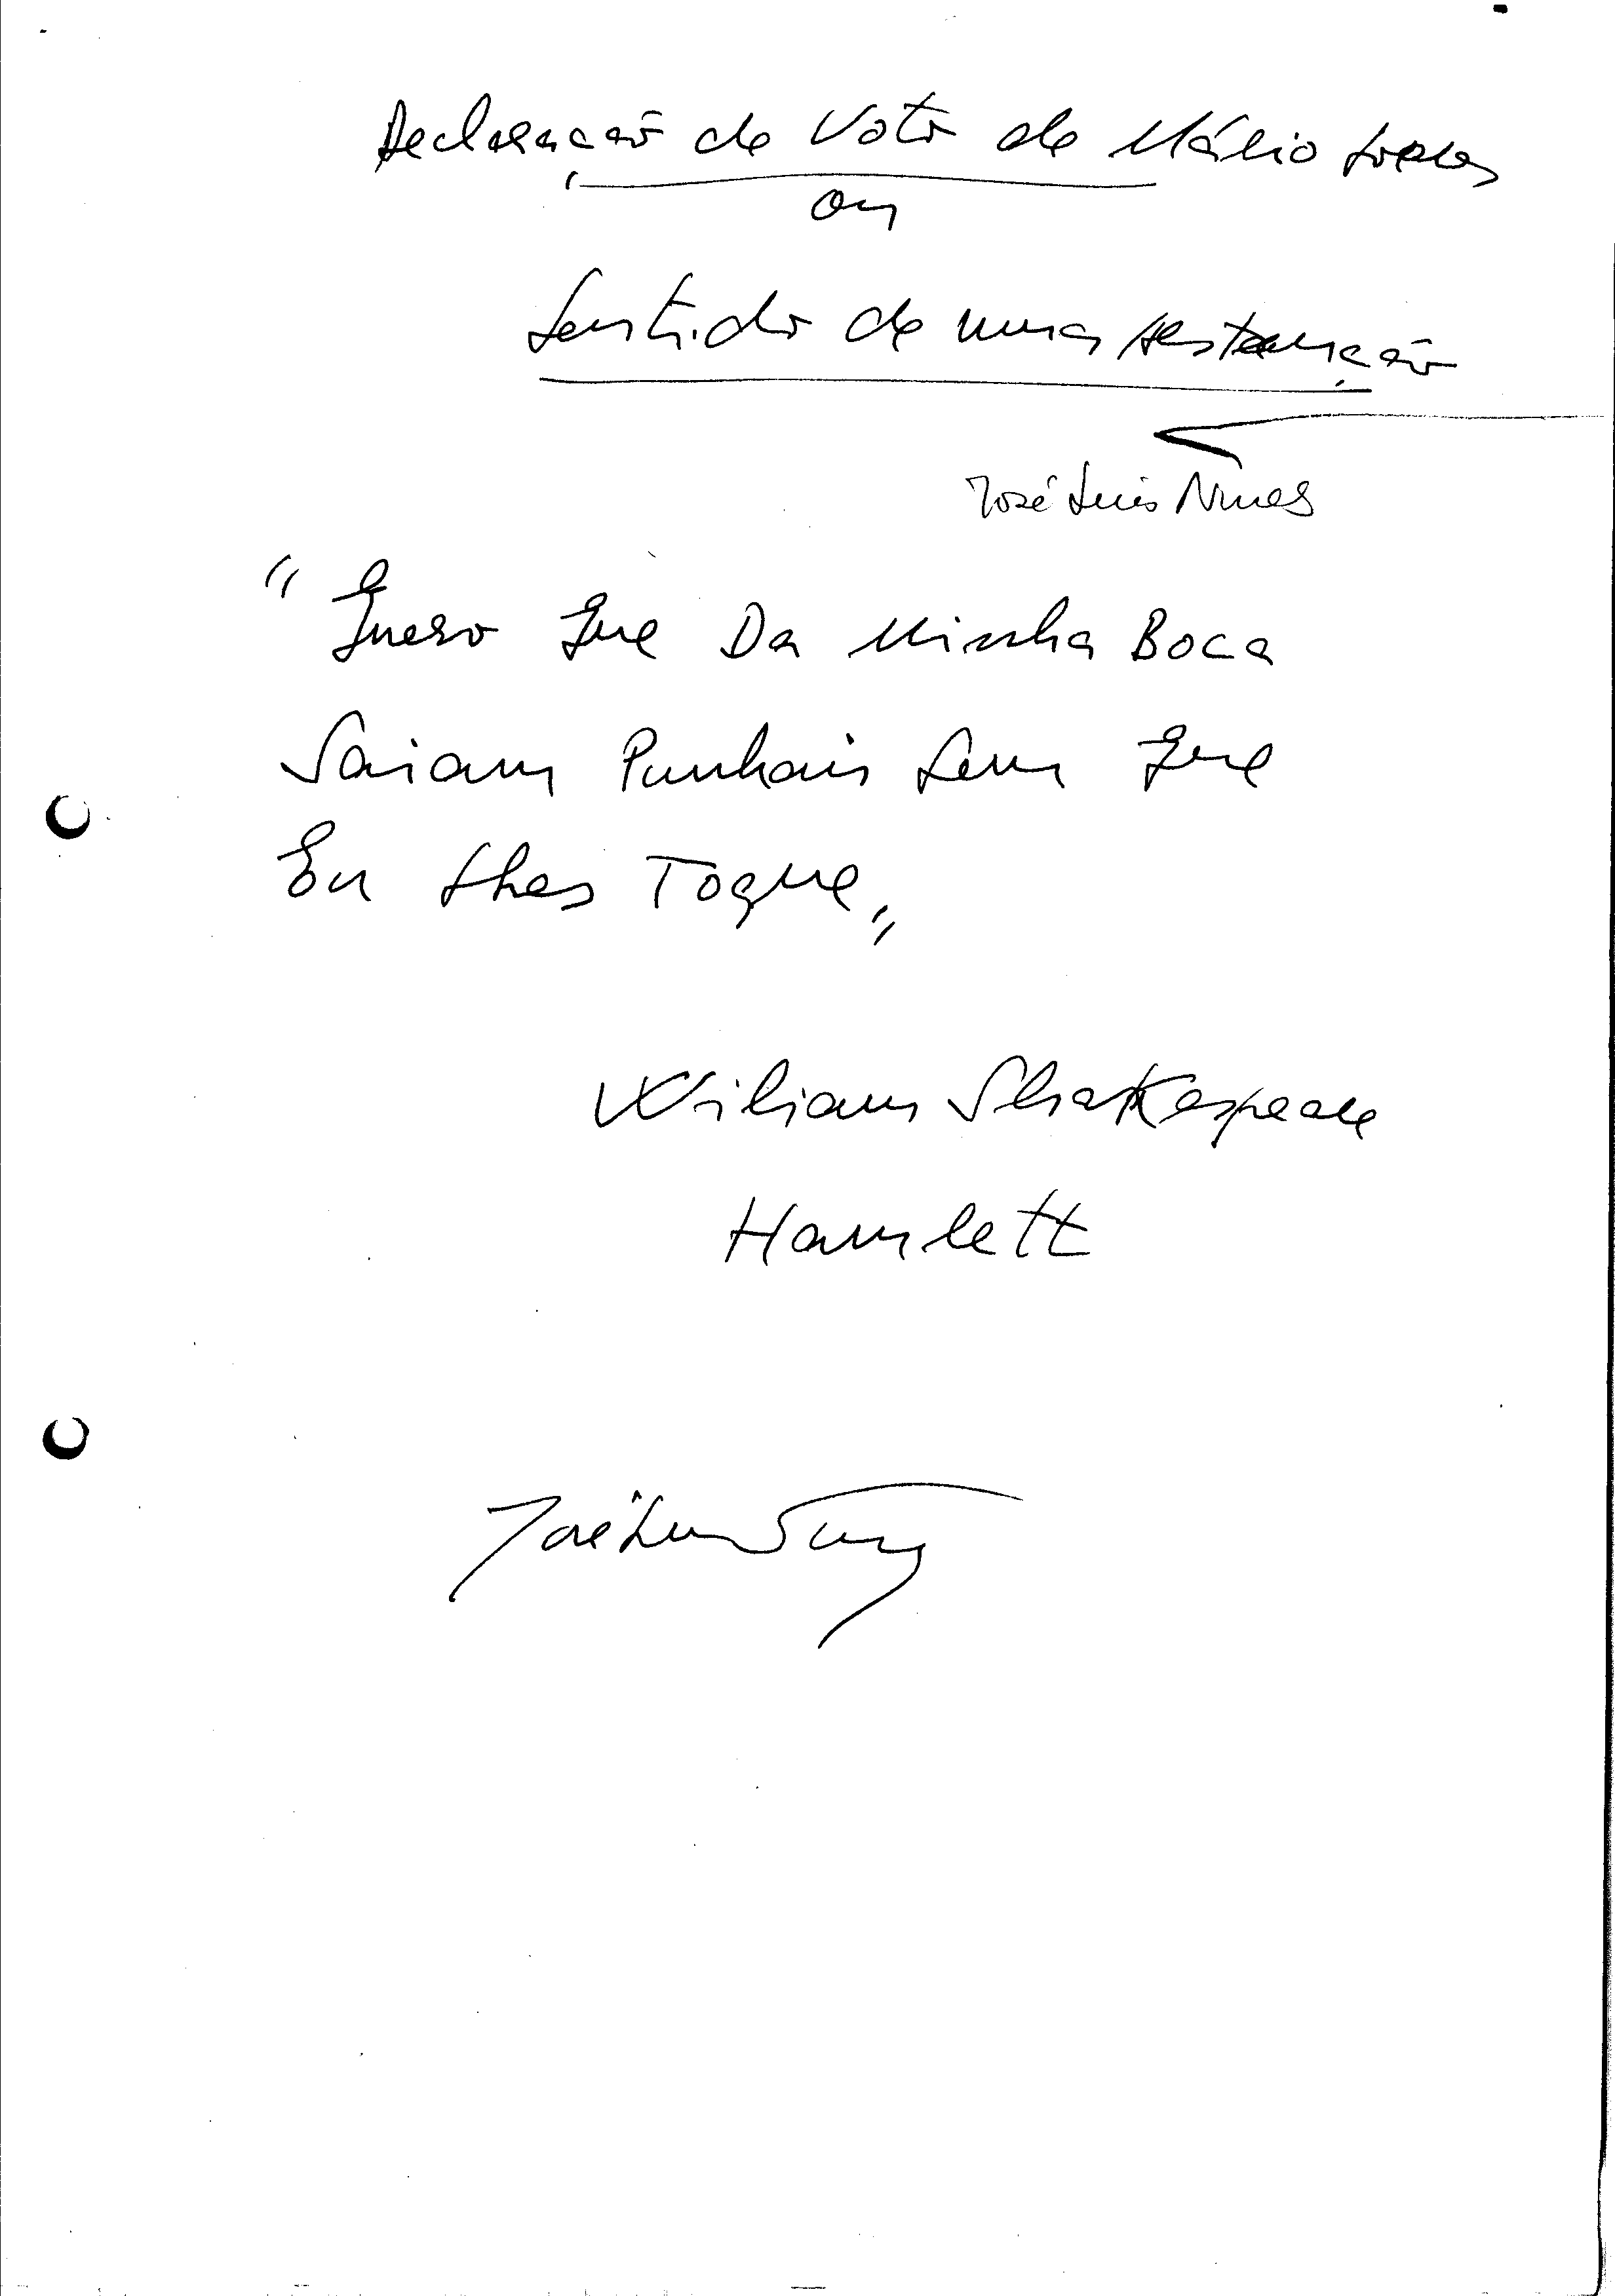 Declaração de Voto de Mário Soares
ou
Sentido de uma
José Luis Nunes
"Quero Que Da Minha Boca
Saiam Punhais Sem Que
Eu Lhes Toque"
Wiliam Shakespeare
Hamlett
José Luis Nunes